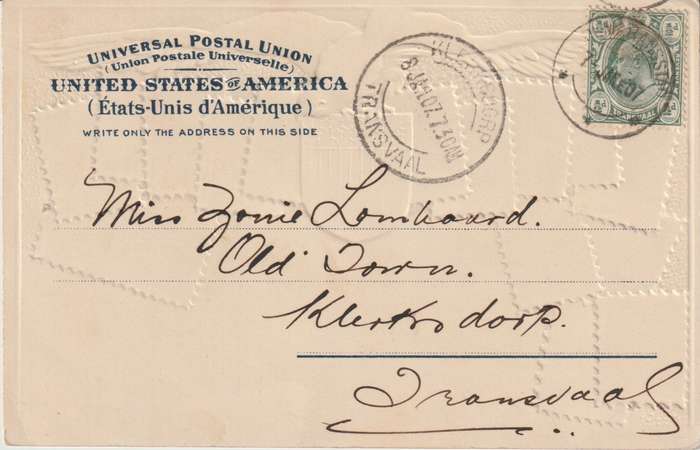 UNIVERSAL POSTAL UNION
(Union Postale Universelle)
UNITED STATES OF AMERICA
(États-Unis d'Amérique)
WRITE ONLY THE ADDRESS ON THIS SIDE
KLERKSDORP
8 JAN 07. 7.30AM
TRANSVAAL
TRANSVAAL
Miss Zonie Lombaard.
Old Town.
Klerksdorp.
Transvaal